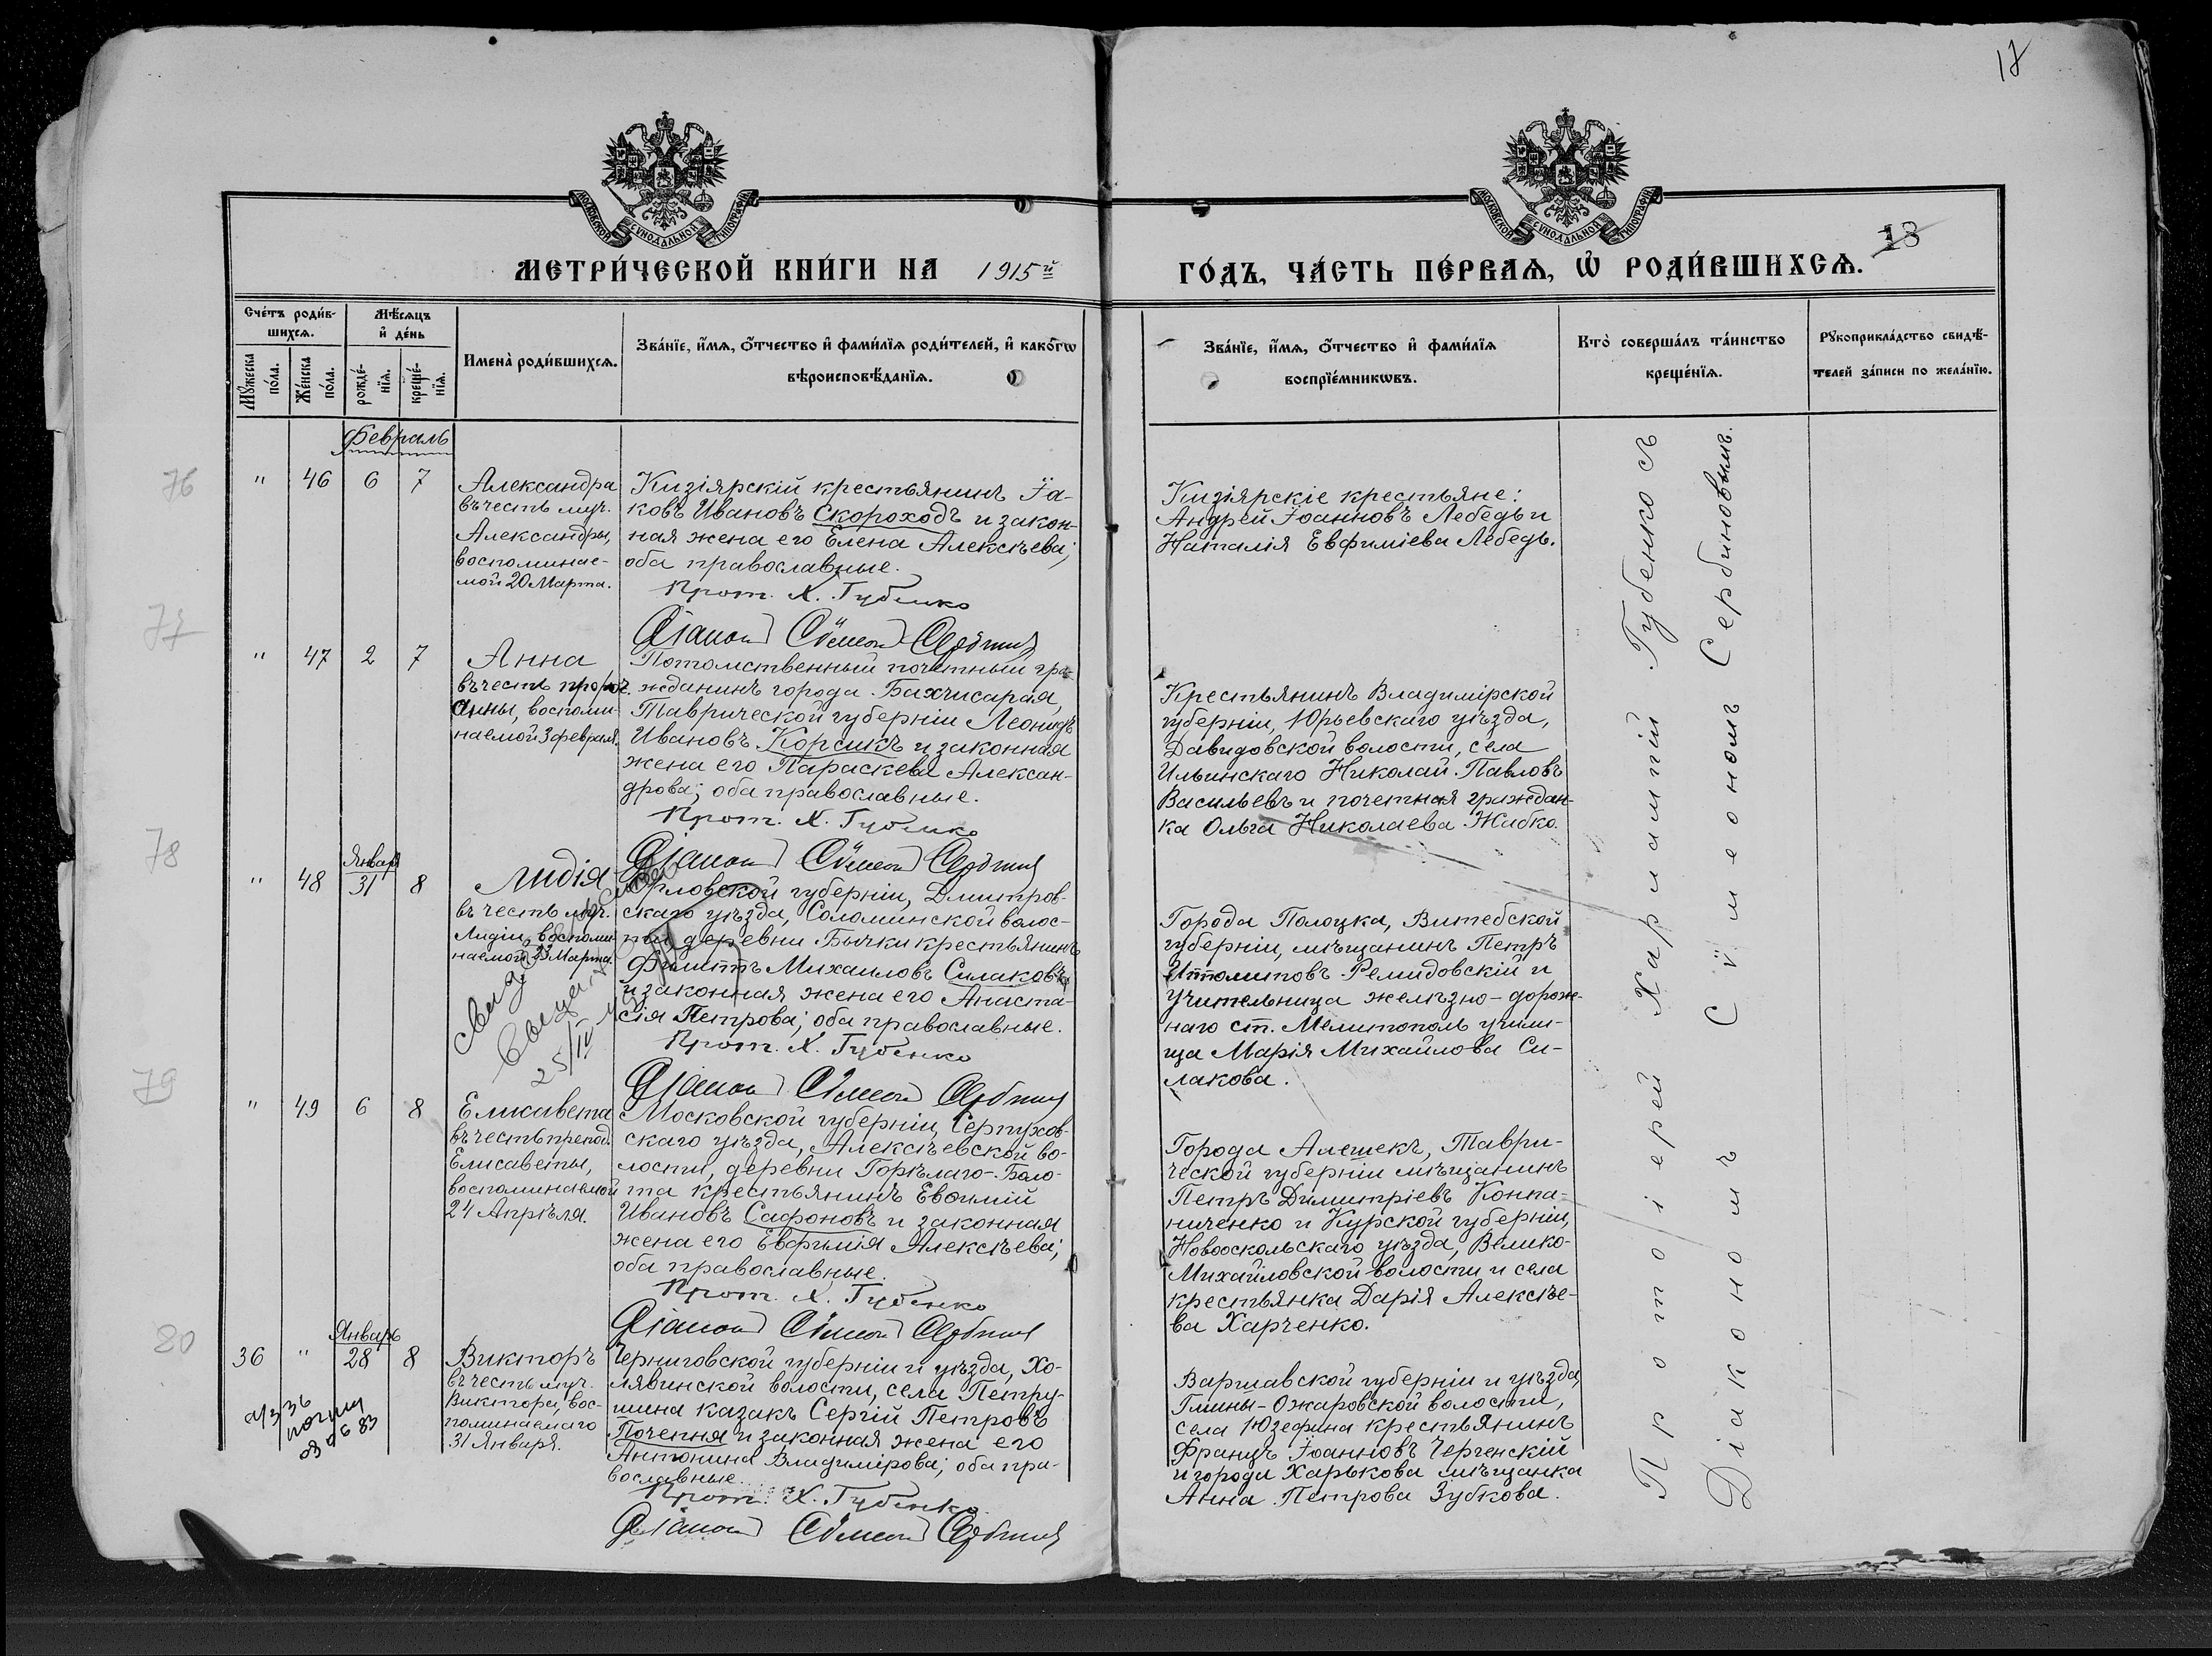 17
18
МОСКОВСКОЙ СѴНОДАЛЬНОЙ ТИПОГРАФІИ
МОСКОВСКОЙ СѴНОДАЛЬНОЙ ТИПОГРАФІИ
МЕТРИ́ЧЕСКОЙ КНИ́ГИ НА 1915й
ГО́ДЪ, ЧА́СТЬ ПЕ́РВАѦ, Ѡ҆ РОДИ́ВШИХСѦ.
Сче́тъ роди́в-
шихсѧ.
Мꙋ́жеска
по́ла.
Же́нска
по́ла.
Мѣ́сѧцъ
и҆ де́нь
рожде́-
нїѧ.
креще́-
нїѧ.
Имена̀ роди́вшихсѧ.
Зва́нїе, и҆́мѧ, ѻ҆́тчество и҆ фами́лїѧ роди́телей, и҆ како́гѡ
вѣроисповѣ́данїѧ.
Зва́нїе, и҆́мѧ, ѻ҆́тчество и҆ фами́лїѧ
воспрїе́мникѡвъ.
Кто̀ соверша́лъ та́инство
креще́нїѧ.
Рꙋкоприкла́дство свидѣ́-
телей за́писи по жела́нїю.
Февраль
76
" 46 6 7
Александра
въ честь муч.
Александры,
воспоминае-
мой 20 Марта.
Кизіярскій крестьянинъ Іа-
ковъ Ивановъ Скороходъ и закон-
ная жена его Елена Алексѣева;
оба православные.
Прот. Х. Губенко
Діакон Сѵмеон Сербинов
Кизіярскіе крестьяне:
Андрей Іоанновъ Лебедь и
Наталія Евфиміева Лебедь.
77
" 47 2 7
Анна
въ честь пророч.
Анны, воспоми-
наемой 3 февраля.
Потомственный почетный гра-
жданинъ города Бахчисарая,
Таврической губерніи Леонидъ
Ивановъ Корсикъ и законная
жена его Параскева Алексан-
дрова; оба православные.
Прот. Х. Губенко
Діакон Сѵмеон Сербинов
Крестьянинъ Владимірской
губерніи, Юрьевскаго уѣзда,
Давидовской волости, села
Ильинскаго Николай Павловъ
Васильевъ и почетная граждан-
ка Ольга Николаева Жибко.
78
Январ
" 48 31 8
Лидія
въ честь муч.
Лидіи, воспоми-
наемой 23 Марта.
25/IV
Орловской губерніи, Дмитров-
скаго уѣзда, Соломинской волос-
ти, деревни Бычки крестьянинъ
Филиппъ Михаиловъ Силаковъ
и законная жена его Анаста-
сія Петрова; оба православные.
Прот. Х. Губенко
Діакон Сѵмеон Сербинов
Города Полоцка, Витебской
губерніи, мѣщанинъ Петръ
Ипполитовъ Ремидовскій и
учительница желѣзно-дорож-
наго ст. Мелитополь учили-
ща Марія Михайлова Си-
лакова.
79
" 49 6 8
Елисавета
въ честь препод.
Елисаветы,
воспоминаемой
24 Апрѣля.
Московской губерніи, Серпухов-
скаго уѣзда, Алексѣевской во-
лости, деревни Горѣлаго-Боло-
та крестьянинъ Евѳимій
Ивановъ Сафоновъ и законная
жена его Евфимія Алексѣева;
оба православные.
Прот. Х. Губенко
Діакон Сѵмеон Сербинов
Города Алешекъ, Таври-
ческой губерніи мѣщанинъ
Петръ Димитріевъ Конпа-
ниченко и Курской губерніи,
Новооскольскаго уѣзда, Велико-
Михайловской волости и села
крестьянка Дарія Алексѣе-
ва Харченко.
80
Январь
36 " 28 8
Викторъ
въ честь муч.
Виктора, вос-
поминаемаго
31 Января.
а/з 36
Черниговской губерніи и уѣзда, Хо-
лявинской волости, села Петру-
шина казакъ Сергій Петровъ
Почепня и законная жена его
Антонина Владимірова; оба пра-
вославные.
Прот. Х. Губенко
Діакон Сѵмеон Сербинов
Варшавской губерніи и уѣзда,
Гмины-Ожаровской волости,
села Юзефина крестьянинъ
Францъ Іоанновъ Чергенскій
и города Харькова мѣщанка
Анна Петрова Зубкова.
Протоіерей Харлампій Губенко съ
Діакономъ Сѵмеономъ Сербиновымъ.